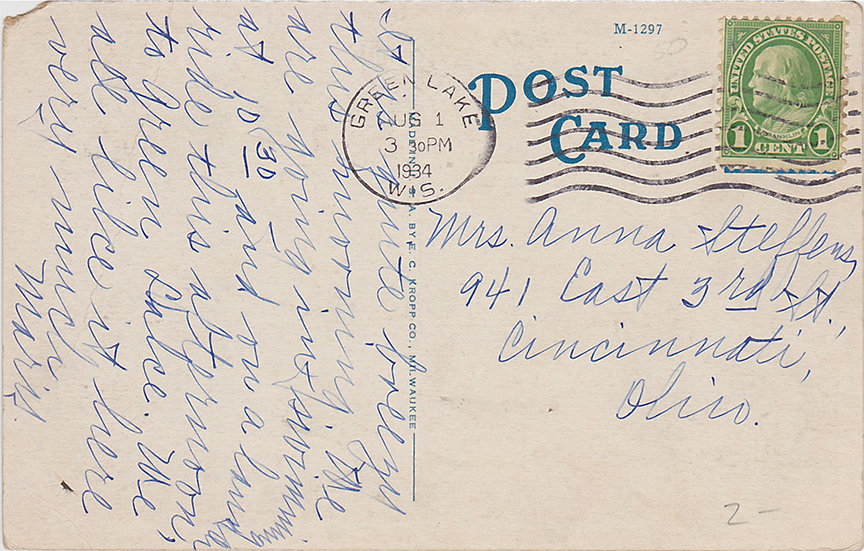 M-1297
POST
CARD
UNITED STATES POSTAGE
FRANKLIN
1 CENT 1
GREEN LAKE
AUG 1
3 30PM
1934
WIS.
It is quite breezy
this morning. We
are going in swimming
at 10 30 and on a long
ride this afternoon,
to Green Lake. We
all like it here
very much
Marie.
BY E. C. KROPP CO., MILWAUKEE
Mrs. Anna Steffens,
941 East 3rd St.,
Cincinnati,
Ohio.
2-